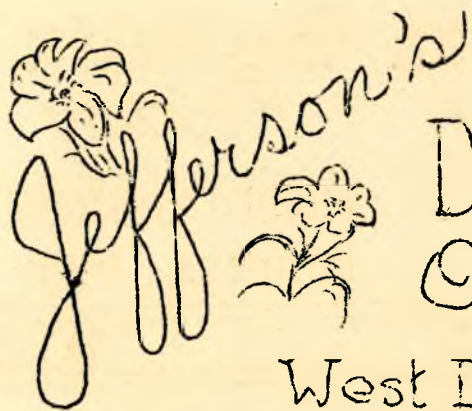 Jefferson's
D
O
West D